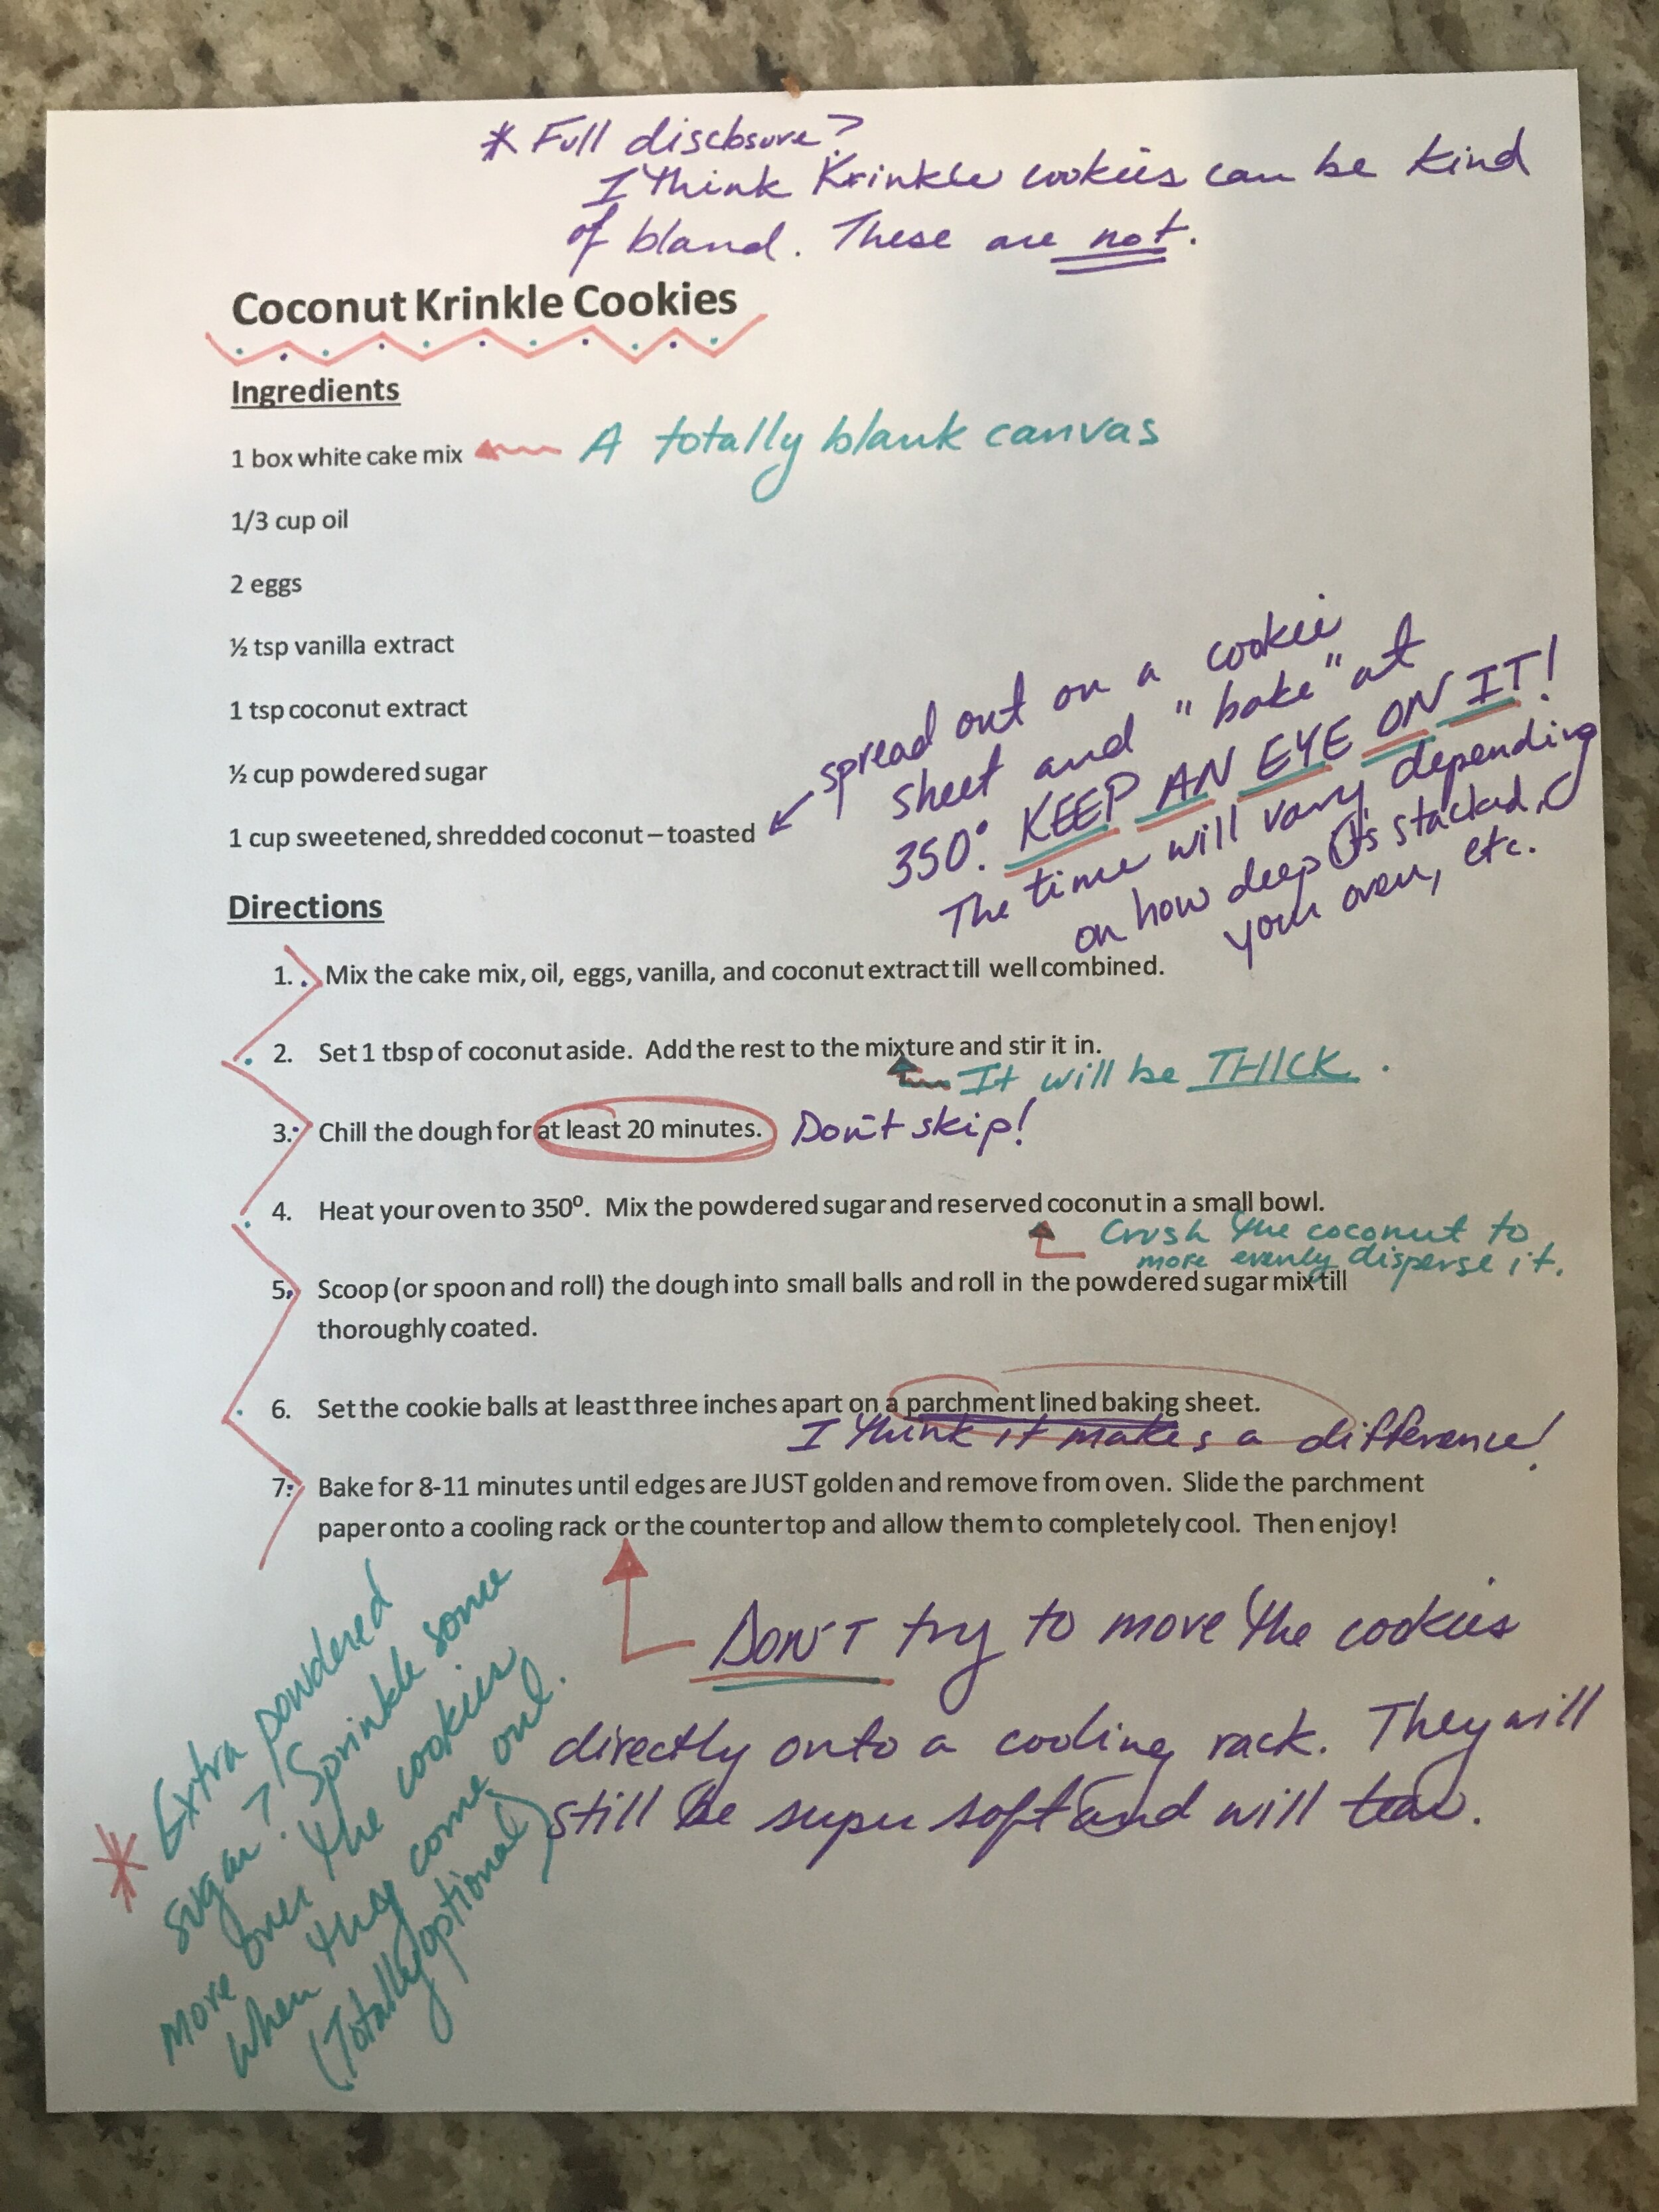 * Full disclosure?
I think Krinkle cookies can be kind
of bland. These are not.
Coconut Krinkle Cookies
Ingredients
1 box white cake mix
A totally blank canvas
1/3 cup oil
2 eggs
½ tsp vanilla extract
1 tsp coconut extract
½ cup powdered sugar
1 cup sweetened, shredded coconut – toasted
spread out on a cookie
sheet and "bake" at
350°. KEEP AN EYE ON IT!
The time will vary depending
on how deep it's stacked,
your oven, etc.
Directions
1. Mix the cake mix, oil, eggs, vanilla, and coconut extract till well combined.
2. Set 1 tbsp of coconut aside. Add the rest to the mixture and stir it in.
It will be THICK.
3. Chill the dough for at least 20 minutes. Don't skip!
4. Heat your oven to 350º. Mix the powdered sugar and reserved coconut in a small bowl.
Crush the coconut to
more evenly disperse it.
5. Scoop (or spoon and roll) the dough into small balls and roll in the powdered sugar mix till
thoroughly coated.
6. Set the cookie balls at least three inches apart on a parchment lined baking sheet.
I think it makes a difference!
7. Bake for 8-11 minutes until edges are JUST golden and remove from oven. Slide the parchment
paper onto a cooling rack or the countertop and allow them to completely cool. Then enjoy!
DON'T try to move the cookies
directly onto a cooling rack. They will
still be super soft and will tear.
* Extra powdered
sugar? Sprinkle some
more over the cookies
when they come out.
(Totally optional)